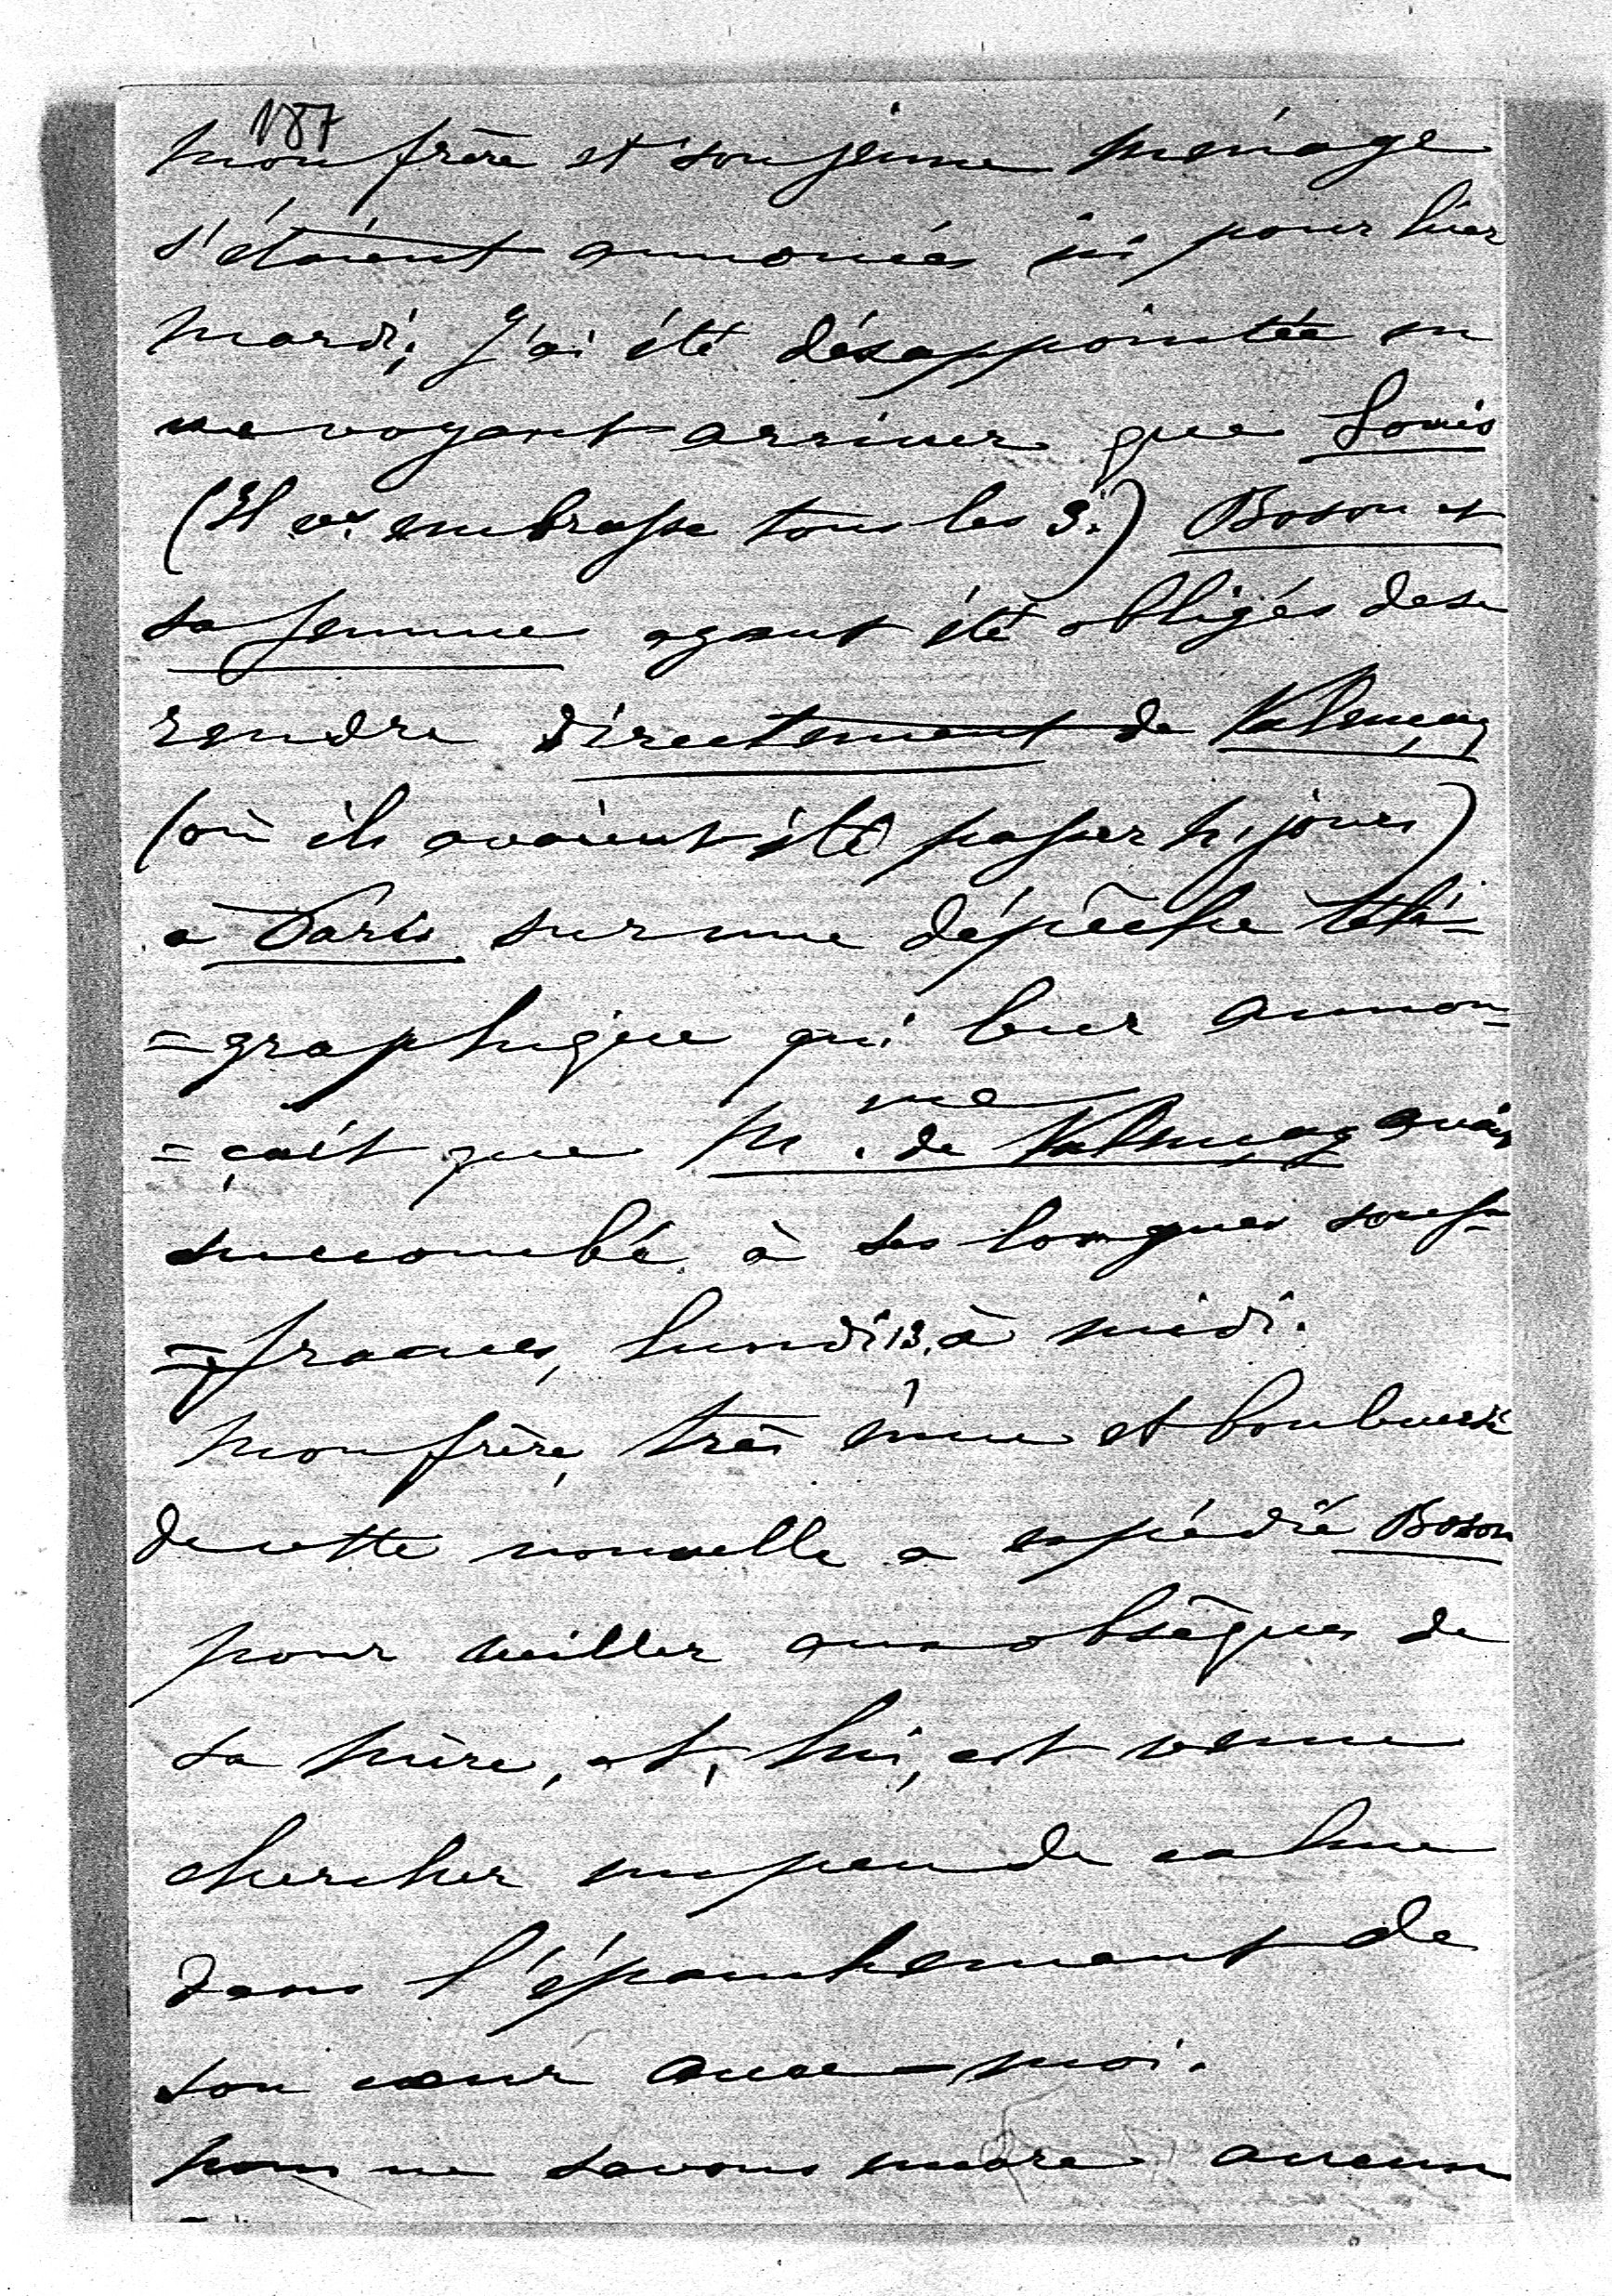 187
Mon frère et son jeune ménage
s'étaient annoncés ici pour hier
mardi; j'ai été désappointée en
ne voyant arriver que Louis
(Il vs embrasse tous les 3.) Boson et
sa femme ayant été obligés de se
rendre directement de Valençay
(où ils avaient été passer h. jours)
a Paris sur une dépêche télé-
=graphique qui leur annon-
=çait que Mme. de Valençay avait
succombé à ses longues souf-
=frances, lundi 13, à midi.
Mon frère, très ému et bouleversé
de cette nouvelle a expédié Boson
pour veiller aux obsèques de
sa mère, et, lui, est venu
chercher un peu de calme
dans l'épanchement de
son cœur avec moi.
Nous ne savons encore aucun